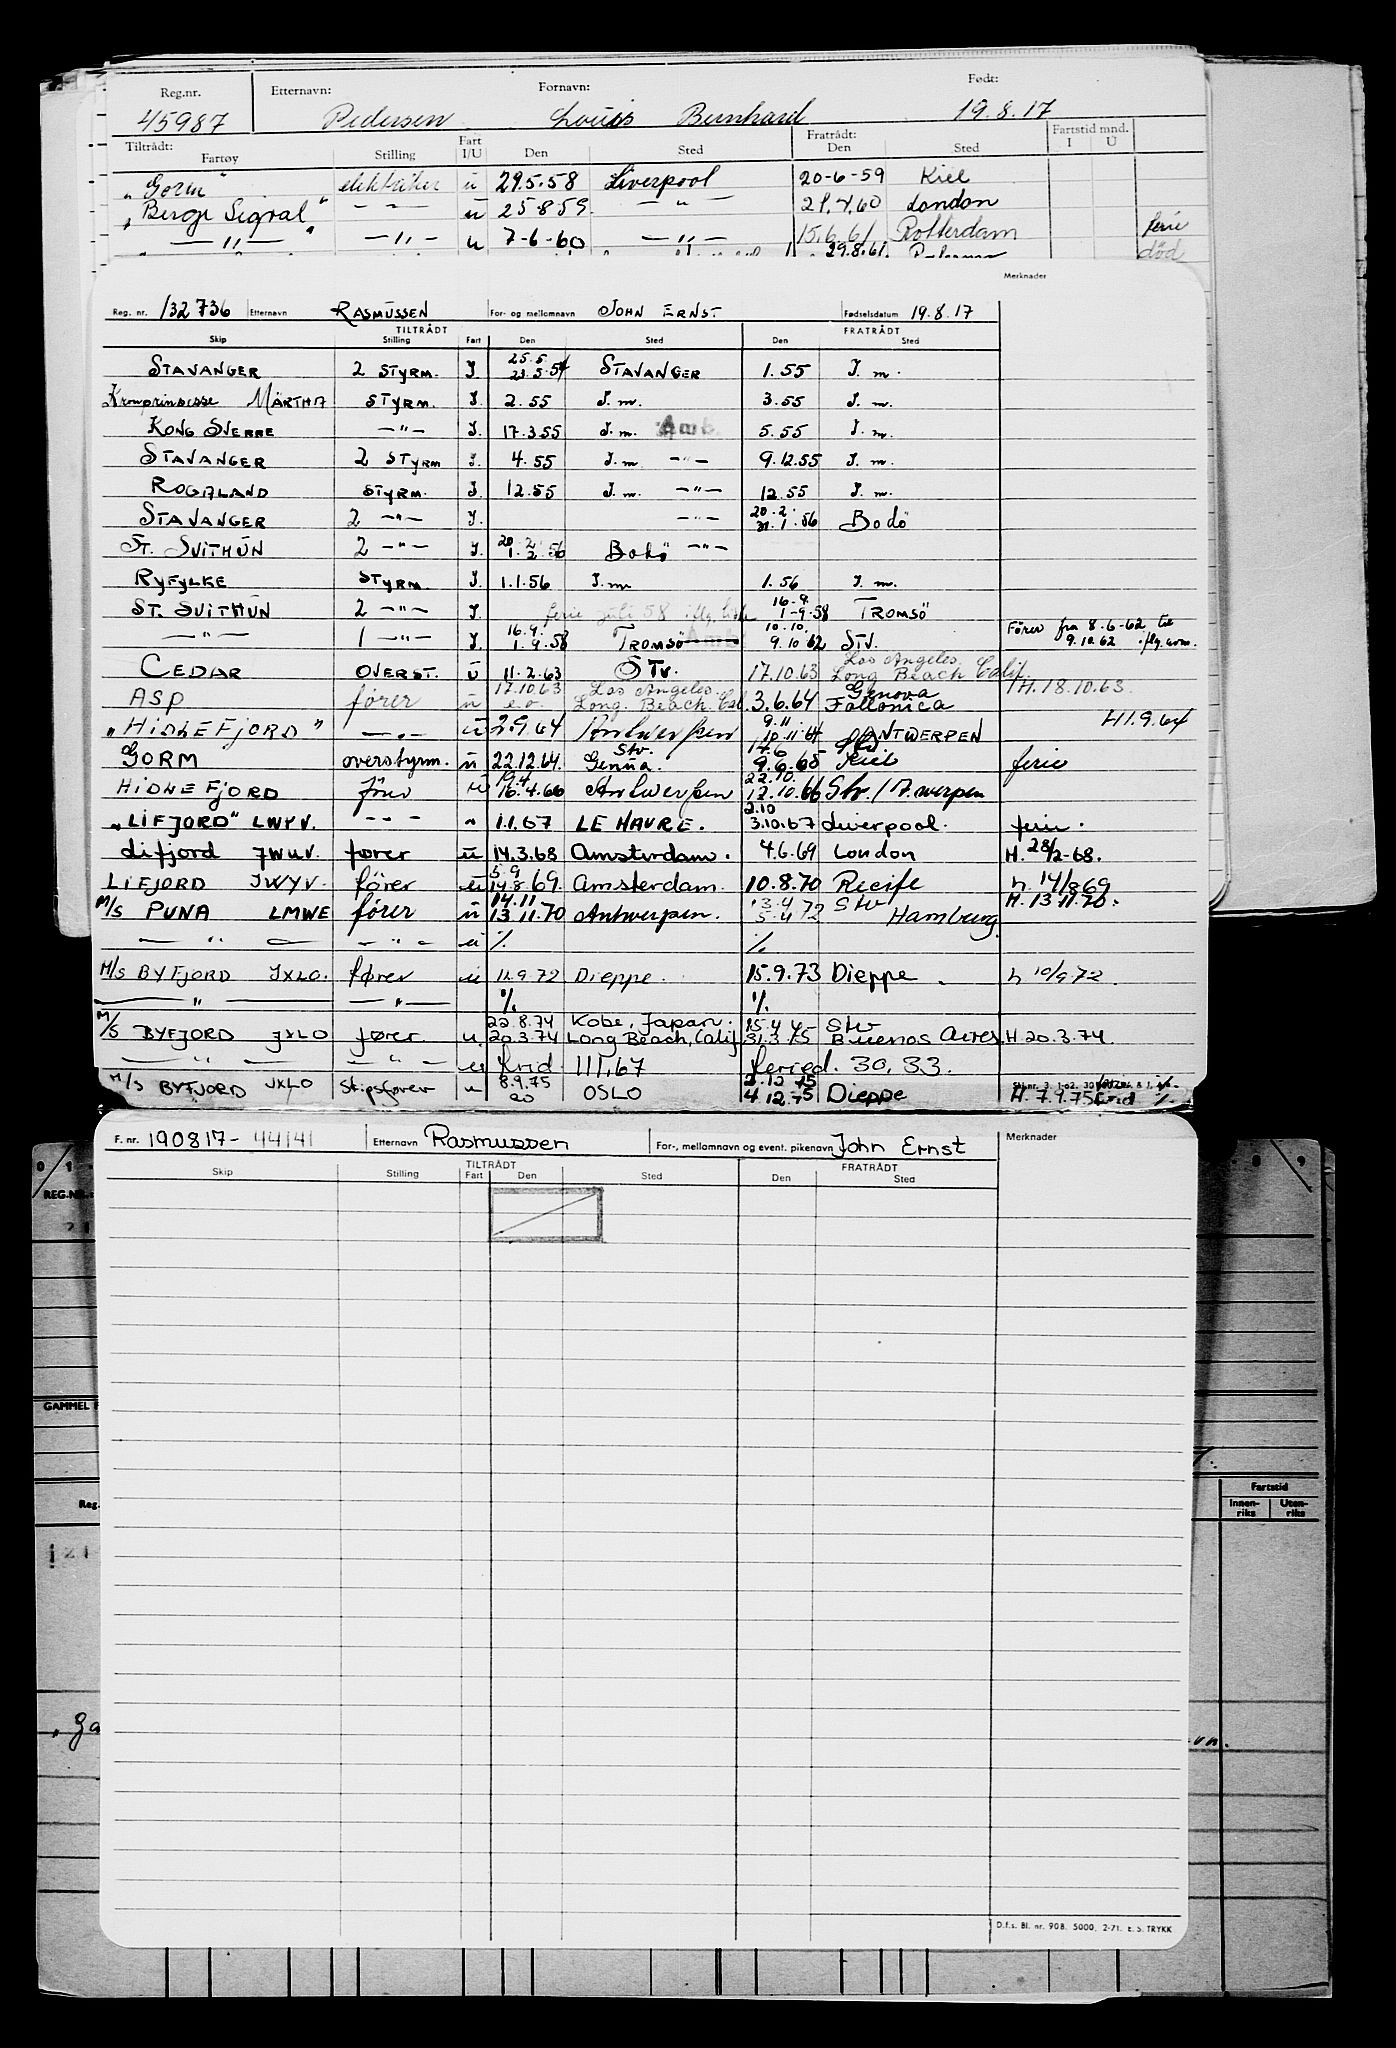 Reg.nr. Etternavn: Fornavn: Født:
45987 Pedersen Louis Bernhard 19.8.17
Tiltrådt: Fratrådt: Fartstid mnd.
Fartøy Stilling Fart I/U Den Sted Den Sted I U
"Gorm" elektriker u 29.5.58 Liverpool 20-6-59 Kiel
"Berge Sigval" -"- u 25859. -"- 21.4.60 London
-"- -"- u 7-6-60 -"- 15.6.61 Rotterdam ferie
29.8.61 død
Merknader
Reg. nr. 132736 Etternavn RASMUSSEN For- og mellomnavn JOHN ERNST Fødselsdatum 19.8.17
TILTRÅDT FRATRÅDT
Skip Stilling Fart Den Sted Den Sted
25.5.
STAVANGER 2 STYRM. I. 23.5.54 STAVANGER 1.55 I.m.
Kronprinsesse MÄRTHA STYRM. I. 2.55 I.m. 3.55 I.m.
KONG SVERRE -"- I. 17.3.55 I.m. Amb. 5.55 I.m.
STAVANGER 2 STYRM I. 4.55 I.m. -"- 9.12.55 I.m.
ROGALAND STYRM. I. 12.55 I.m. -"- 12.55 I.m.
20.2.
STAVANGER 2 -"- I. -"- 31.1.56 Bodö
20.2.
ST. SVITHUN 2 -"- I. 1.2.56 Bodö -"-
RYFYLKE STYRM. I. 1.1.56 I.m. 1.56 I.m.
16.9.
ST. SVITHUN 2 -"- I. ferie juli 58 iflg. liste 1-9.58 TROMSÖ
16.9. 10.10. Förer fra 8.6-62 til
-"- 1 -"- I. 1.9.58 TROMSÖ Amb. 9.10.62 STV. 9.10.62 iflg. oom.
Los Angeles.
CEDAR OVERST. u 11.2.63 STV. 17.10.63 Long Beach Calif.
17.10.63 Los Angeles. Genova 1H.18.10.63.
ASP förer u e.o. Long. Beach. Cal. 3.6.64 Follonica
9.11. H1.9.64
"HIDLEFJORD" -"- u 2.9.64 Antwerpen 10.11.64 ANTWERPEN
Stv. 17.6 Stv
GORM overstyrm. u 22.12.64. Genua. 9.6.65 Kiel ferie
19.4 22.10.
HIDLEFJORD förer u 16.4.66 Antwerpen 12.10.66 Stv. / A.werpen
2.10
"LIFJORD" LWYV. -"- " 1.1.67 LE HAVRE. 3.10.67 Liverpool. ferie.
Lifjord JWUV. fører u 14.3.68 Amsterdam. 4.6.69 London H. 28/2-68.
5.9
LIFJORD JWYV. fører u 14.8 69. Amsterdam. 10.8.70 Recife h. 14/8 69
14.11 13.4 Stv H. 13.11.70.
M/S PUNA LMWE fører u 13.11.70 Antwerpen. 5.4 72 Hamburg
-"- -"- u %. %.
M/S BYFJORD JXLO. fører u 11.9.72 Dieppe. 15.9.73 Dieppe. h 10/9 72.
-"- -"- %. %.
22.8.74 Kobe, Japan. 15.4.75 Stv
M/S BYFJORD JXLO fører u. 20.3.74 Long Beach, Calif 31.3.75 Buenos Aires. H 20.3.74.
-"- -"- u Krid. III,67 feried. 30,33.
8.9.75 2.12.75
M/S BYFJORD JXLO skipsfører u ao OSLO 4.12.75 Dieppe H. 7.9.75
F. nr. 190817-44141 Etternavn Rasmussen For-, mellomnavn og event. pikenavn John Ernst Merknader
TILTRÅDT FRATRÅDT
Skip Stilling Fart Den Sted Den Sted
D.f.s. Bl. nr. 908. 5000. 2-71. E. S. TRYKK
0 1
9
REG.NR.
GAMMEL F
Reg.
Fartstid
Innenriks Utenriks